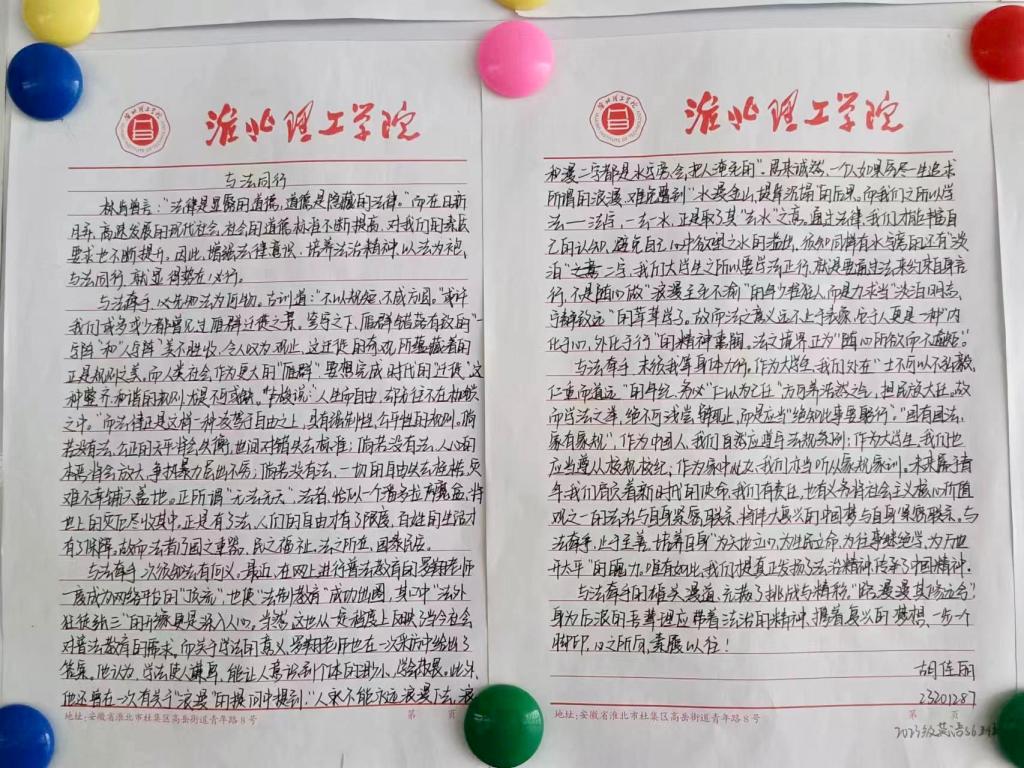 淮北理工学院
与法同行
林肯曾言："法律是显露的道德，道德是隐藏的法律。"而在日新
月异，高速发展的现代社会，社会的道德标准不断提高，对我们的素质
要求也不断提升。因此，增强法律意识，培养法治精神，以法为袍，
与法同行，就显得势在必行。
与法牵手，必先他法为何物。古训道："不以规矩，不成方圆。"或许
我们或多或少都曾见过雁群迁徙之景。寒雪之下，雁群错落有致的"一
字阵"和"人字阵"美不胜收，令人叹为观止，这迁徙的奇观所蕴藏着的
正是规则之美，而人类社会作为更大的"雁群"要想完成时代的"迁徙"，这
种整齐和谐的规则大是不可或缺。卢梭说："人生而自由，却无往不在枷锁
之中。"而法律正是这样一种凌驾于自由之上，具有强制性，公平性的规则。倘
若没有法，公正的天平将会失衡，世间对错失去标准；倘若没有法，人心的
本恶将会放大，争执暴力层出不穷；倘若没有法，一切的自由失去桎梏，灾
难不幸铺天盖地。正所谓"无法无天"，法者，恰似一个潘多拉魔盒，将
世上的灾厄尽收其中。正是有了法，人们的自由才有了限度，百姓的生活才
有了保障。故而法者乃国之重器，民之福祉，法之所在，国泰民安。
与法牵手，次很知法有何义。最近，在网上进行普法教育的罗翔老师
一度成为网络平台的"顶流"，也使"法制教育"成功出圈，其口中"法外
狂徒张三"的形象更是深入人心。当然，这也从一定程度上反映了当今社会
对普法教育的需求。而关于学法的意义，罗翔老师也在一次采访中给出了
答案。他认为，学法使人谦卑，能让人意识到个体的渺小，学会敬畏。此外，
他还曾在一次有关于"浪漫"的提问中提到："人家不能永远浪漫下去，浪
地址：安徽省淮北市杜集区高岳街道青年路8号
第 页
淮北理工学院
和漫二字都是水字旁，会把人淹死的"。居来诚然，一个人如果穷尽一生追求
所谓的浪漫，难免遭到"水漫金山，堤岸沉塌"的后果，而我们之所以学
法——法字，一去一水，正是取了其"去水"之意。通过法律，我们才能丰富自
己的认知，避免自己心中欲望之水的溢出，很如同样有水字旁的还有"淡
泊"二字，我们大学生之所以要与法正行，就是要通过法来约束自身言
行，不是随心做"浪漫至死不渝"的年少轻狂人，而是力求当"淡泊明志，
宁静致远"的莘莘学子。故而法之意义远不止于表象，它于人更是一种"内
化于心，外化于行"的精神素养。法之境界正为"随心所欲而不逾矩"。
与法牵手，未统我等身体力行。作为大学生，我们处在"士不可以不弘毅，
任重而道远"的年纪，务必"仁以为己任"方可养浩然之气，担民族大任。故
而学法之举，绝不可浅尝辄止，而是应当"绝知此事要躬行"。"国有国法，
家有家规"，作为中国人，我们自然应遵守法规条例；作为大学生，我们也
应当遵从校规校纪；作为家中儿女，我们亦当听从家规家训。未来属于青
年，我们肩负着新时代的使命，我们有责任，也有义务将社会主义核心价值
观之一的法治与自身紧密联系，将伟大复兴的中国梦与自身紧密联系。与
法牵手，止于至善，培养自身"为天地立心，为生民立命，为往圣继绝学，为万世
开太平"的魄力。唯有如此，我们才真正发扬了法治精神，传承了中国精神。
与法牵手的雄关漫道，充满了挑战与精彩，"路漫漫其修远兮"，
身为后浪的吾辈理应带着法治的精神，携着复兴的梦想，一步一个
脚印，心之所向，素履以往！
胡佳丽
23201287
地址：安徽省淮北市杜集区高岳街道青年路8号
第 页
2023级英语S6班